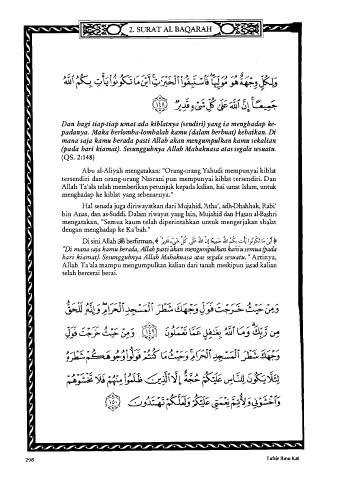 2. SURAT AL BAQARAH
وَلِكُلٍّ وِجْهَةٌ هُوَ مُوَلِّيهَا فَاسْتَبِقُوا الْخَيْرَاتِ أَيْنَ مَا تَكُونُوا يَأْتِ بِكُمُ اللَّهُ
جَمِيعًا إِنَّ اللَّهَ عَلَى كُلِّ شَيْءٍ قَدِيرٌ ١٤٨
Dan bagi tiap-tiap umat ada kiblatnya (sendiri) yang ia menghadap ke-
padanya. Maka berlomba-lombalah kamu (dalam berbuat) kebaikan. Di
mana saja kamu berada pasti Allah akan mengumpulkan kamu sekalian
(pada hari kiamat). Sesungguhnya Allah Mahakuasa atas segala sesuatu.
(QS. 2:148)
Abu al-Aliyah mengatakan: "Orang-orang Yahudi mempunyai kiblat
tersendiri dan orang-orang Nasrani pun mempunyai kiblat tersendiri. Dan
Allah Ta'ala telah memberikan petunjuk kepada kalian, hai umat Islam, untuk
menghadap ke kiblat yang sebenarnya."
Hal senada juga diriwayatkan dari Mujahid, 'Atha', adh-Dhahhak, Rabi'
bin Anas, dan as-Suddi. Dalam riwayat yang lain, Mujahid dan Hasan al-Bashri
mengatakan, "Semua kaum telah diperintahkan untuk mengerjakan shalat
dengan menghadap ke Ka'bah."
Di sini Allah ﷻ berfirman, ﴿ أَيْنَ مَا تَكُونُوا يَأْتِ بِكُمُ اللَّهُ جَمِيعًا إِنَّ اللَّهَ عَلَى كُلِّ شَيْءٍ قَدِيرٌ ﴾
"Di mana saja kamu berada, Allah pasti akan mengumpulkan kamu semua (pada
hari kiamat). Sesungguhnya Allah Mahakuasa atas segala sesuatu." Artinya,
Allah Ta'ala mampu mengumpulkan kalian dari tanah meskipun jasad kalian
telah bercerai berai.
وَمِنْ حَيْثُ خَرَجْتَ فَوَلِّ وَجْهَكَ شَطْرَ الْمَسْجِدِ الْحَرَامِ وَإِنَّهُ لَلْحَقُّ
مِن رَّبِّكَ وَمَا اللَّهُ بِغَافِلٍ عَمَّا تَعْمَلُونَ ١٤٩ وَمِنْ حَيْثُ خَرَجْتَ فَوَلِّ
وَجْهَكَ شَطْرَ الْمَسْجِدِ الْحَرَامِ وَحَيْثُ مَا كُنتُمْ فَوَلُّوا وُجُوهَكُمْ شَطْرَهُ
لِئَلَّا يَكُونَ لِلنَّاسِ عَلَيْكُمْ حُجَّةٌ إِلَّا الَّذِينَ ظَلَمُوا مِنْهُمْ فَلَا تَخْشَوْهُمْ
وَاخْشَوْنِي وَلِأُتِمَّ نِعْمَتِي عَلَيْكُمْ وَلَعَلَّكُمْ تَهْتَدُونَ ١٥٠
298
Tafsir Ibnu Katsir